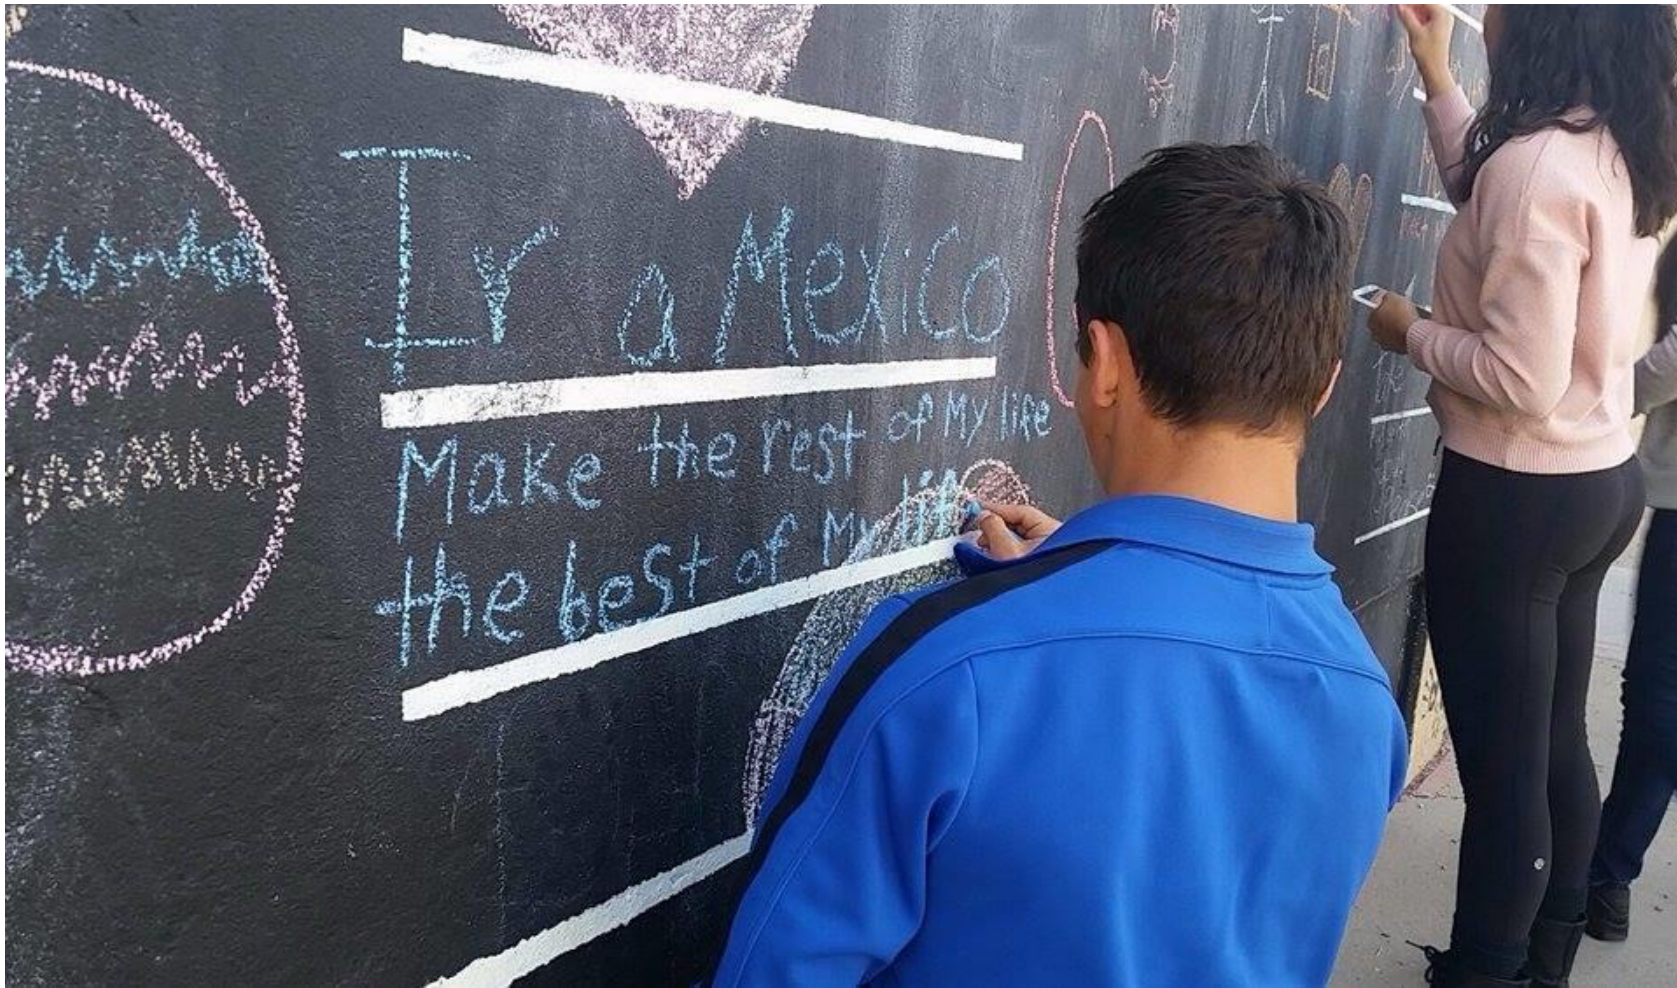 Ir a Mexico
Make the rest of My life
the best of My life